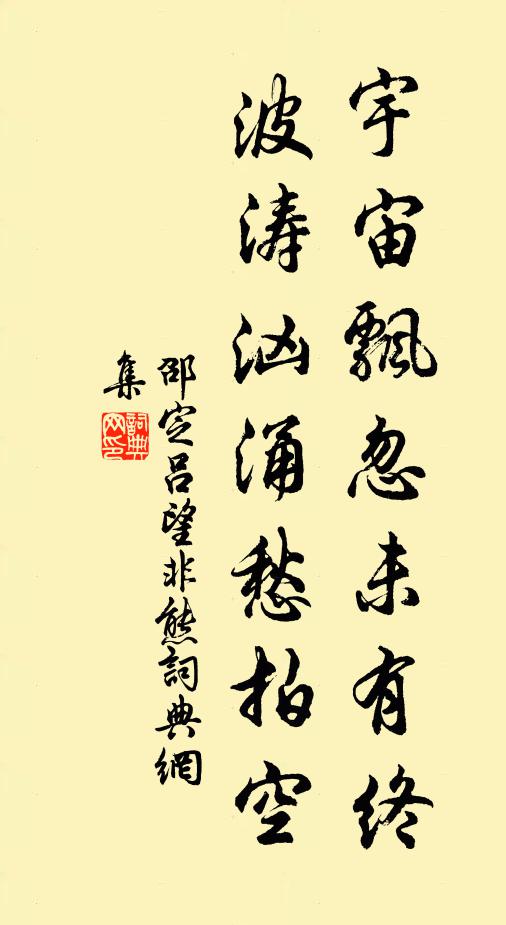 宇宙飄忽未有終
波涛汹涌愁拍空
邵定吕望非熊詞典網
集
詞典
网印